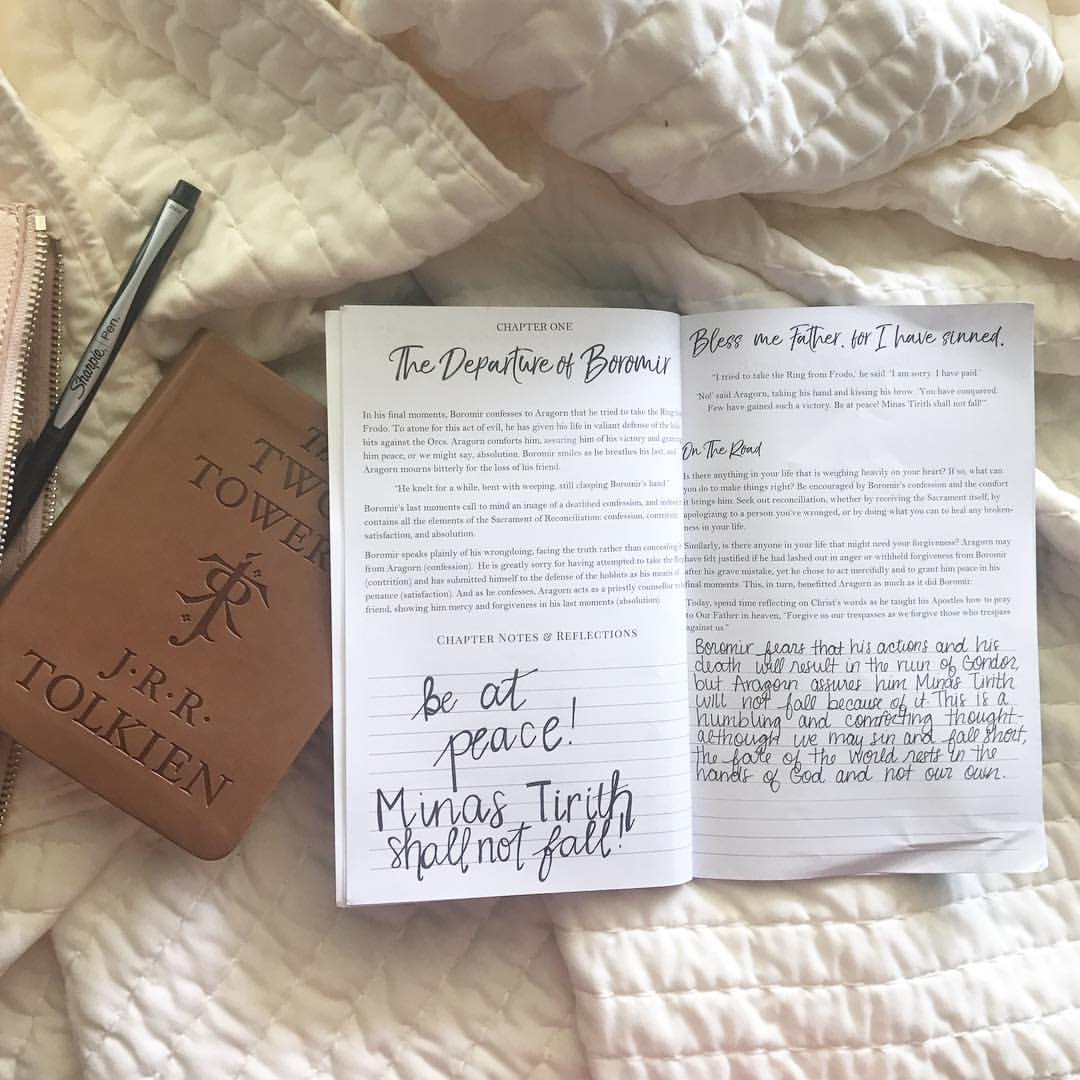 Sharpie. Pen.
THE
TWO
TOWER
J.R.R.
TOLKIEN
CHAPTER ONE
The Departure of Boromir
In his final moments, Boromir confesses to Aragorn that he tried to take the Ring
Frodo. To atone for this act of evil, he has given his life in valiant defense of the
bits against the Orcs. Aragorn comforts him, assuring him of his victory and
him peace, or we might say, absolution. Boromir smiles as he breathes his last, and
Aragorn mourns bitterly for the loss of his friend.
"He knelt for a while, bent with weeping, still clasping Boromir's hand"
Boromir's last moments call to mind an image of a deathbed confession, and
contains all the elements of the Sacrament of Reconciliation: confession, contrition,
satisfaction, and absolution.
Boromir speaks plainly of his wrongdoing, facing the truth rather than concealing
from Aragorn (confession). He is greatly sorry for having attempted to take the
(contrition) and has submitted himself to the defense of the hobbits as his means of
penance (satisfaction). And as he confesses, Aragorn acts as a priestly counsellor to
friend, showing him mercy and forgiveness in his last moments (absolution).
CHAPTER NOTES & REFLECTIONS
be at
peace!
Minas Tirith
shall not fall!
Bless me Father, for I have sinned.
"I tried to take the Ring from Frodo,' he said. 'I am sorry. I have paid.'
'No!' said Aragorn, taking his hand and kissing his brow. 'You have conquered.
Few have gained such a victory. Be at peace! Minas Tirith shall not fall!'"
On The Road
Is there anything in your life that is weighing heavily on your heart? If so, what can
you do to make things right? Be encouraged by Boromir's confession and the comfort
it brings him. Seek out reconciliation, whether by receiving the Sacrament itself, by
apologizing to a person you've wronged, or by doing what you can to heal any broken-
ness in your life.
Similarly, is there anyone in your life that might need your forgiveness? Aragorn may
have felt justified if he had lashed out in anger or withheld forgiveness from Boromir
after his grave mistake, yet he chose to act mercifully and to grant him peace in his
final moments. This, in turn, benefitted Aragorn as much as it did Boromir.
Today, spend time reflecting on Christ's words as he taught his Apostles how to pray
to Our Father in heaven, "Forgive us our trespasses as we forgive those who trespass
against us."
Boromir fears that his actions and his
death will result in the ruin of Gondor,
but Aragorn assures him Minas Tirith
will not fall because of it. This is a
humbling and comforting thought-
although we may sin and fall short,
the fate of the world rests in the
hands of God and not our own.